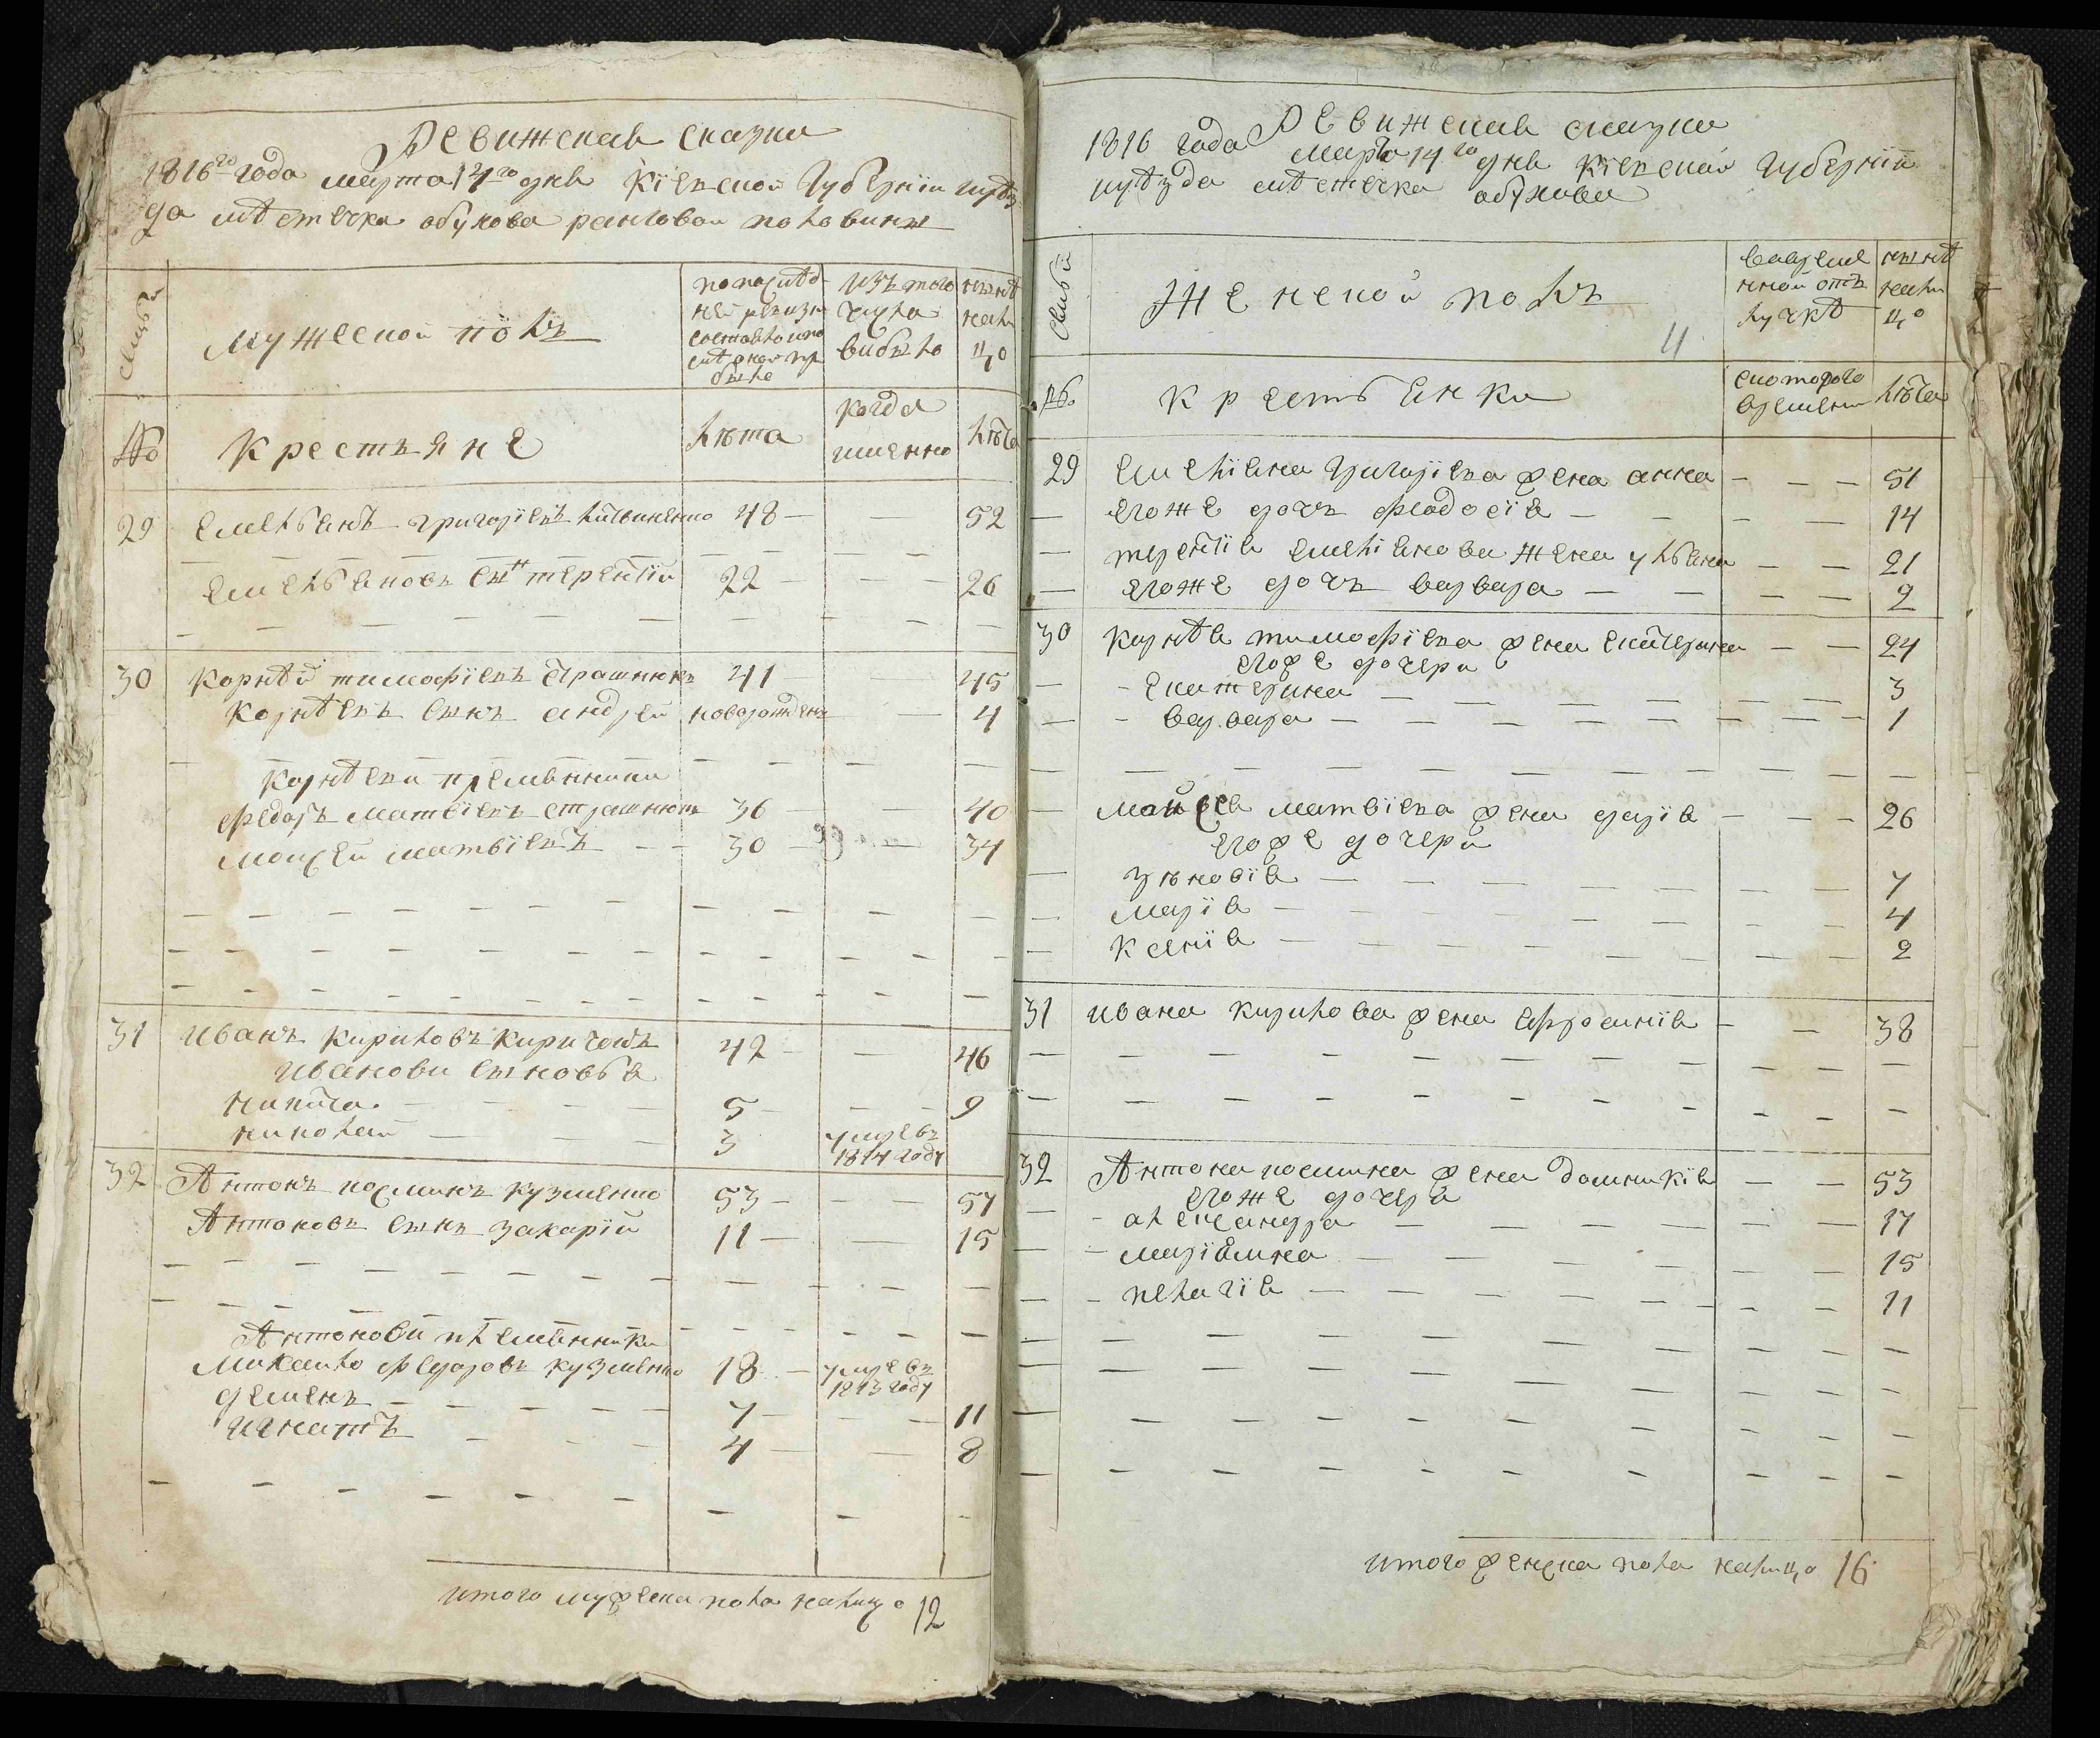 Ревижская сказка
1816го года марта 14го дня Кіевской Губерніи иуѣз
да мѣстечка обухова ранговой половины
Семья
мужеской полъ
по послѣд
ней ревизіи
состояло и по
слѣ оной при
было
Изъ того
числа
выбыло
нынѣ
нали
цо
№
Крестьяне
лѣта
когда
именно
лѣта
29 Емельянъ григоріевъ литвиненко 48 — — 52
Емельяновъ сынъ терентій 22 — — 26
30 Корнѣй тимофіевъ страшнюкъ 41 — 45
Корнѣевъ сынъ андрей новорожденъ — 4
Корнѣеви племянники
федоръ матвіевъ страшнюкъ 36 — 40
моисей матвіевъ — — 30 — — 34
31 Иванъ Кириловъ Киричокъ 42 — — 46
Иванови сыновья
никита — 5 — — 9
николай — 3 умре въ
1814 году
32 Антонъ косминъ кузменко 53 — — 57
Антоновъ сынъ захарій 11 — — 15
Антонови племянники
Михайло федоровъ кузменко 18 — умре въ
1813 году
демянъ — 7 — — 11
игнатъ — 4 — — 8
итого мужеска пола налицо 12
Ревижская сказка
1816 года марта 14го дня Кіевской Губерніи
иуѣзда мѣстечка обухова
Семья
Женской полъ
11
Вовремен
ной отъ
лучкѣ
нынѣ
нали
цо
№
Крестьянки
скоторого
времени
лѣта
29 Емеліяна григоріева жена анна — — — 51
— егоже дочь феодосія — — — 14
— терентія емеліянова жена ульяна — — 21
— егоже дочь варвара — — — — 2
30 Корнѣя тимофіева жена екатерина — — 24
егоже дочери
— - екатерина — — — 3
— - варвара — — — 1
— моисея матвіева жена дарія — — — 26
егоже дочери
— зѣновія — — — 7
— марія — — — 4
— Ксенія — — — 2
31 ивана кирилова жена ефросинія — — 38
32 Антона космина жена домникія — — 53
егоже дочери
— - александра — — — 17
— - маріямна — — — 15
— - пелагія — — — 11
итого женска пола налицо 16